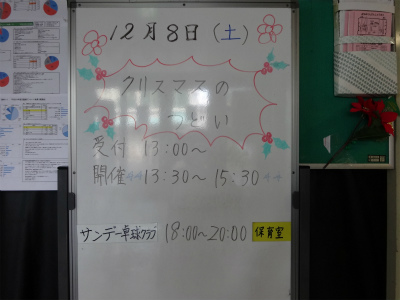 12月8日(土)
クリスマスの
つどい
受付 13:00～
開催 13:30～15:30
サンデー卓球クラブ 18:00～20:00 保育室